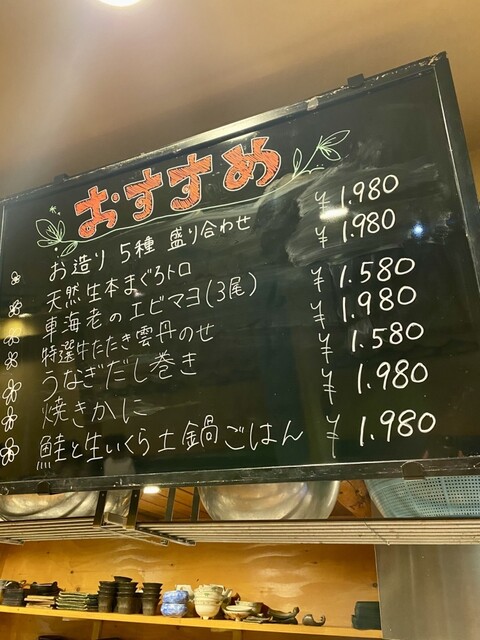 おすすめ
お造り 5種 盛り合わせ ¥1.980
天然生本まぐろトロ ¥1.980
車海老のエビマヨ(3尾) ¥1.580
特選牛たたき雲丹のせ ¥1.980
うなぎだし巻き ¥1.580
焼きかに ¥1.980
鮭と生いくら土鍋ごはん ¥1.980